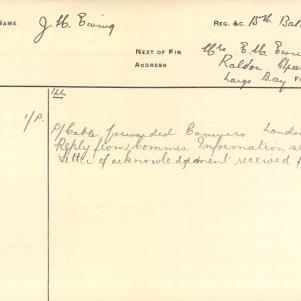 NAME J H Ewing REG. &C. 15th Bat
NEXT OF KIN Mrs E M Ewi
ADDRESS Raldon
Largs Bay
Ill
1/P. P/Cable forwarded London
Reply from Information
Letter of acknowledgment received